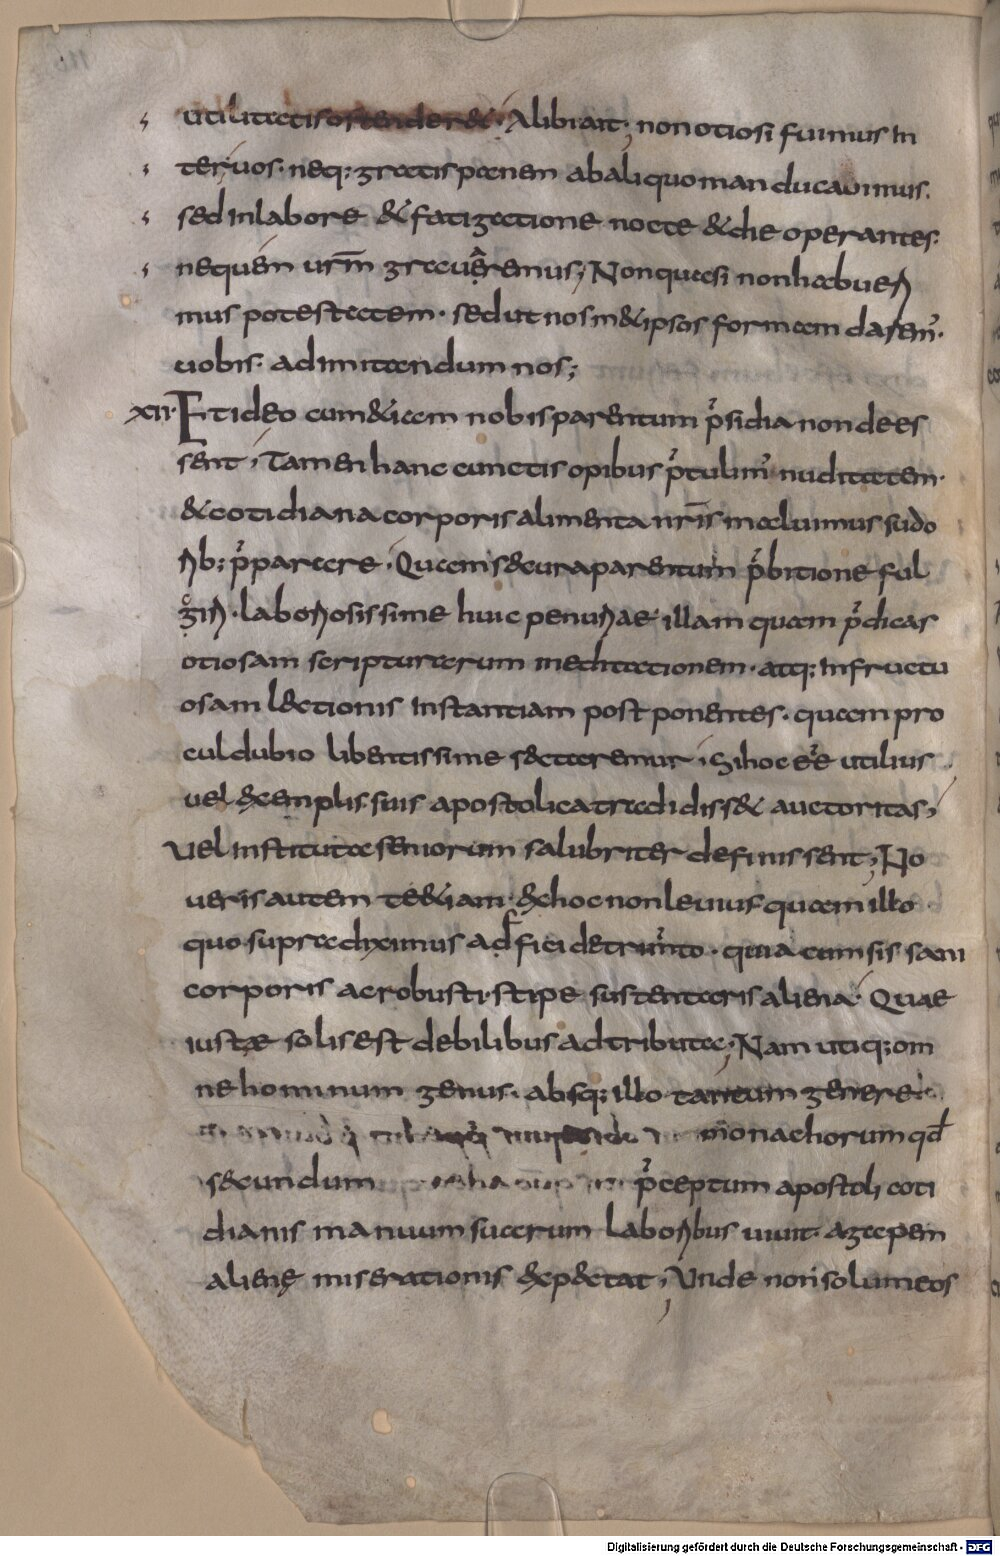 utilitatis ostenderet. Alibi ait; non otiosi fuimus in
ter uos. neq; gratis panem ab aliquo manducauimus.
sed in labore & fatigatione nocte & die operantes.
ne quem urm̄ grauaremus; Non quasi non habueri
mus potestatem. sed ut nosmetipsos formam darem̓.
uobis. ad imitandum nos;
XII. Et ideo cum etiam nobis parentum p̓sidia non dees
sent; Tamen hanc cunctis opibus p̓tulim̓ nuditatem.
& cotidiana corporis alimenta nr̄is maluimus sudo
rib; p̓parare. Quam secura parentum p̓bitione ful
giri. laboriosissime huic penuriae illam quam p̓dicas
otiosam scripturarum meditationem. atq; infructu
osam lectionis instantiam postponentes. quam pro
cul dubio libentissime sectaremur. Si hoc ee̓ utilius
uel exemplis suis apostolica tradidisset auctoritas;
Vel instituta seniorum salubriter definissent; No
ueris autem te etiam ex hoc non leuius quam illo
quo supra diximus adfici detrim̓to. quia cum sis sani
corporis ac robusti. stipe sustentaris aliena. Quae
iustae solis est debilibus adtributa; Nam utiq; om
ne hominum genus. absq; illo tantum genere
monachorum qd̄
secundum p̓ceptum apostoli coti
dianis manuum suarum laboribus uiuit. agapem
alienę miserationis expectat; Unde non solum eos
Digitalisierung gefördert durch die Deutsche Forschungsgemeinschaft - DFG